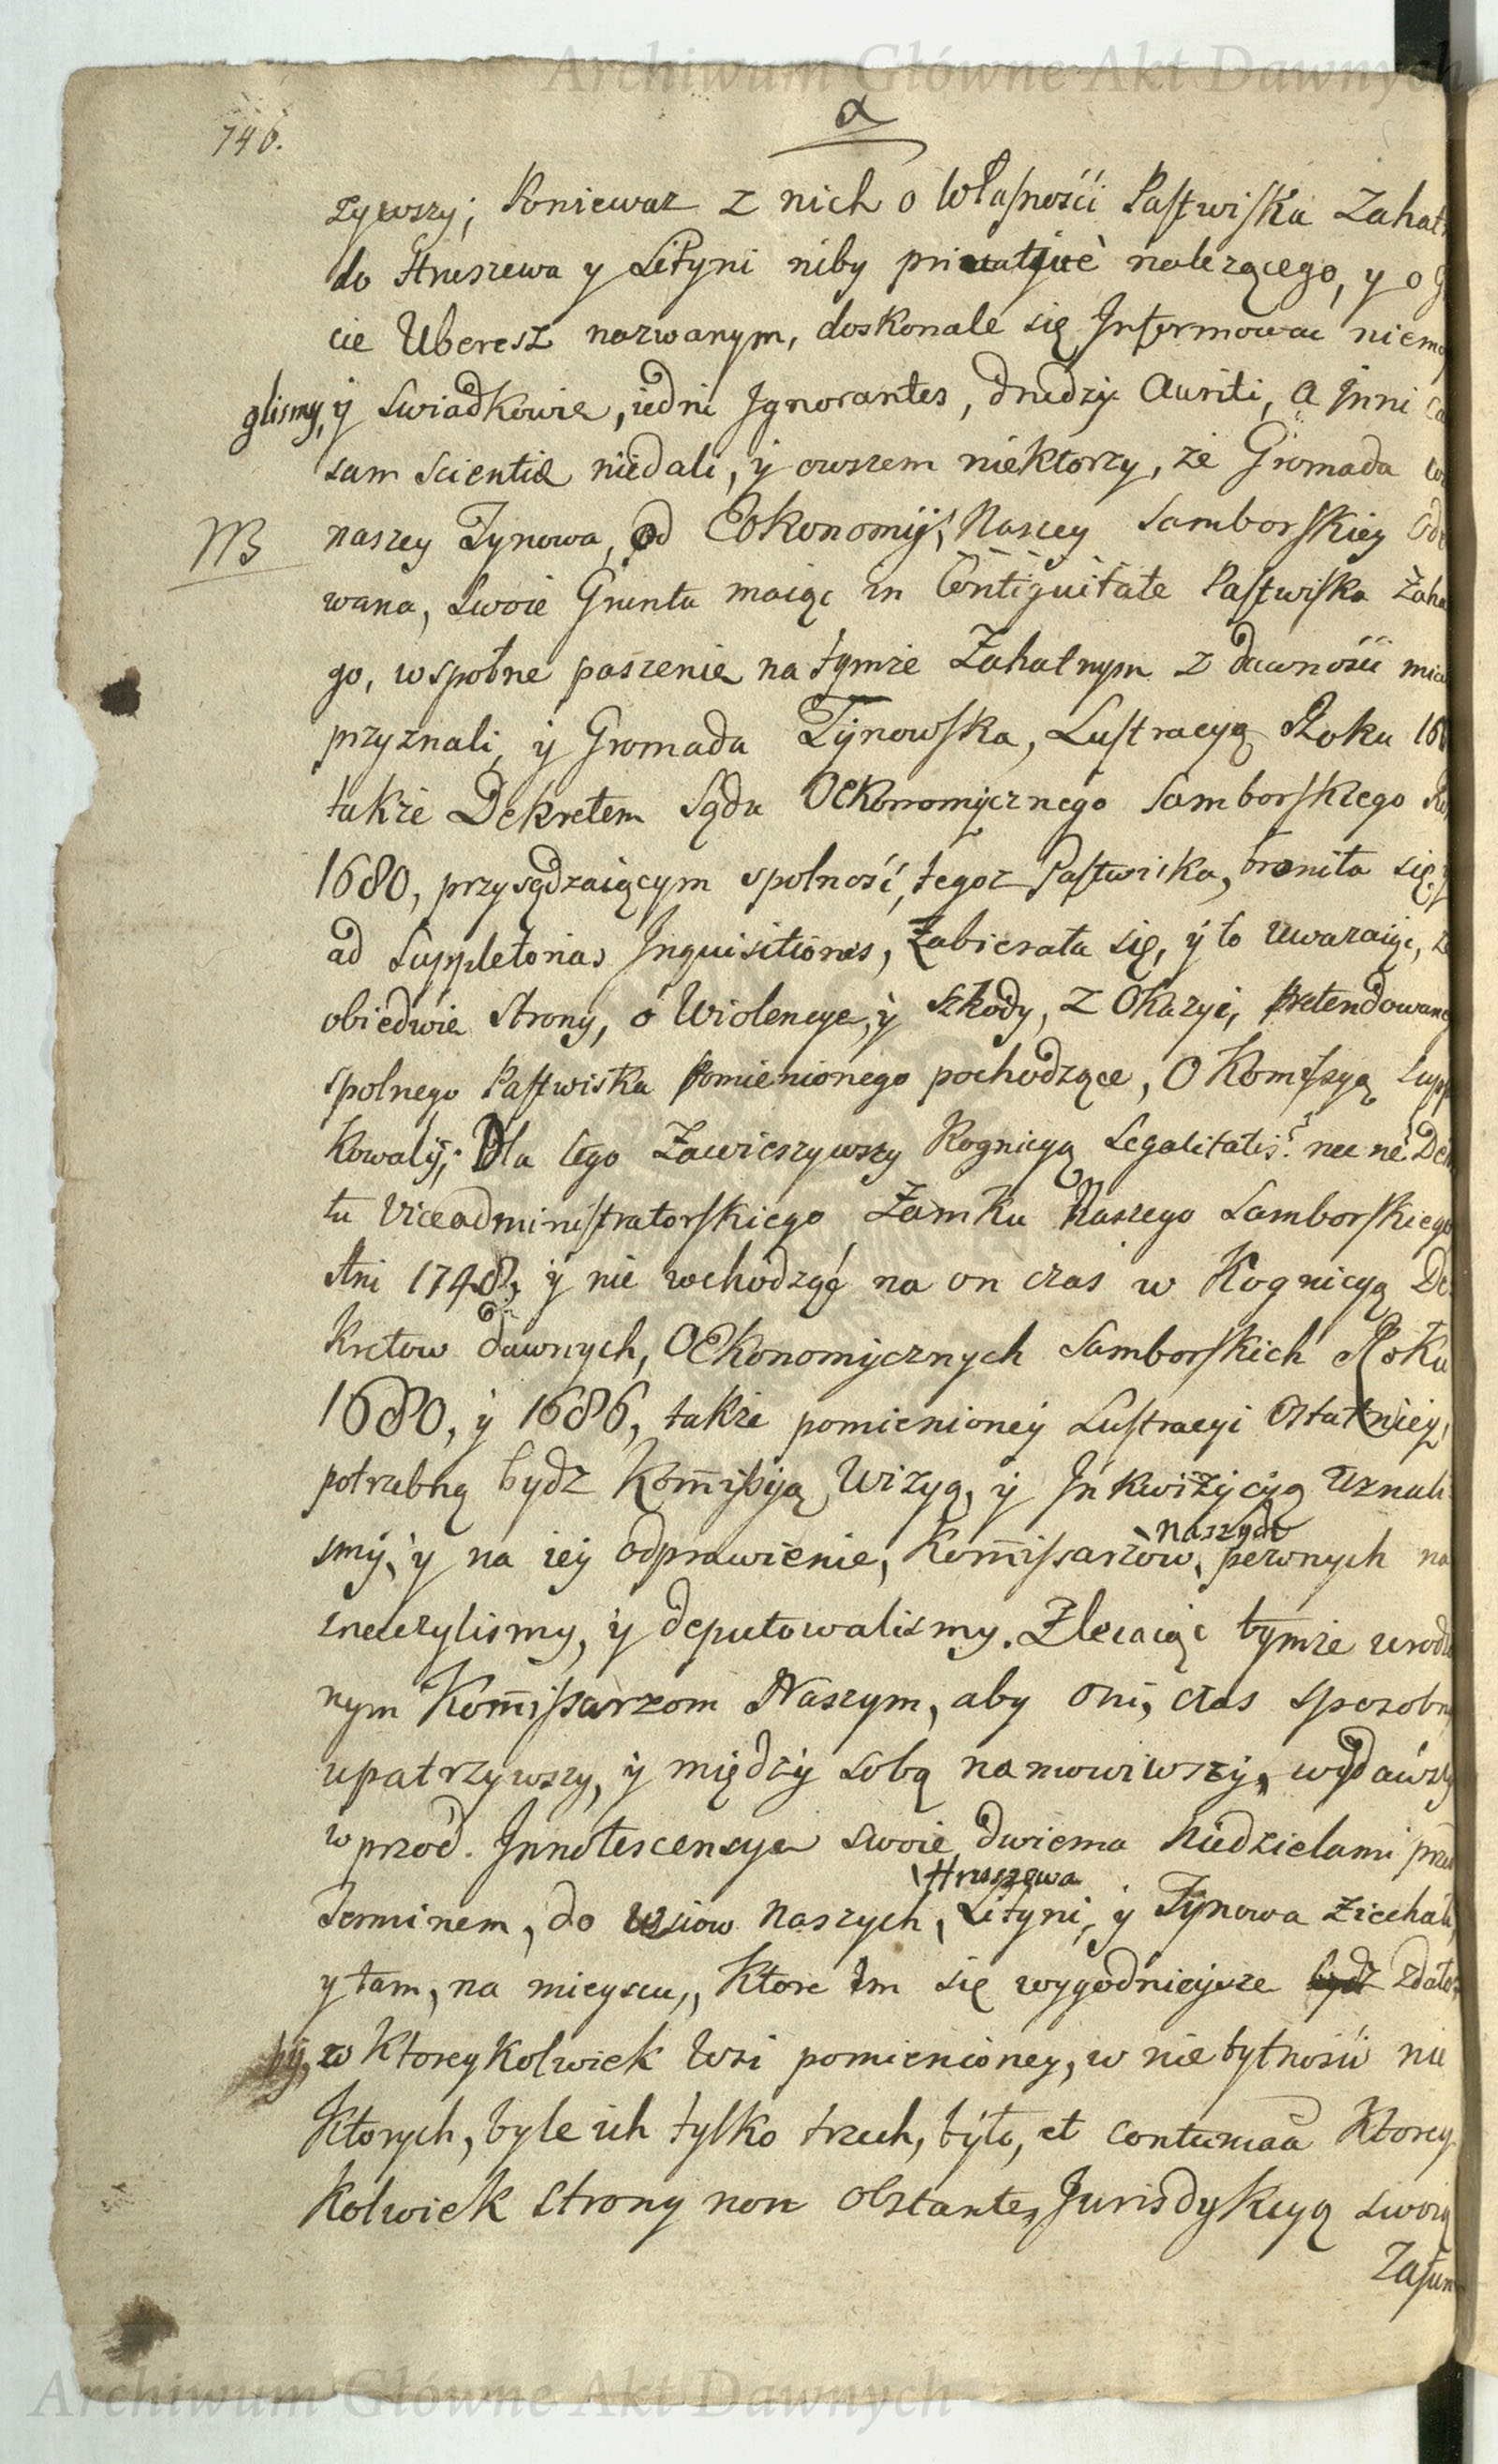 Archiwum Główne Akt Dawnych
α
746.
zywszy; Poniewaz z nich o Własności Pastwiska Zahat
do Hruszewa y Lityni niby privative nalezącego, y o
cie Uberesz nazwanym, doskonale się Informowac niemo
glismy, ÿ Swiadkowie, iedni Ignorantes, drudzÿ Auriti, a Inni ca
sam scientiæ niedali, ÿ owszem niektorzy, ze Gromada
NB
naszey Tynowa, od Œkonomÿi Naszey Samborskiey Ode
wana, Swoie Grunta maiąc in Contiguitate Pastwiska Zaha
go, wspołne paszenie na tymze Zahatnym z dawności mia
przyznali, ÿ Gromada Tÿnowska, Lustracyą Roku 16
takze Dekretem Sądu Œkonomÿcznego Samborskiego
1680, przysądzaiącym spolność, tegoz Pastwiska, broniła się, y
ad Suppletorias Inquisitiones, Zabierała się, ÿ to uwazaiąc, ze
obiedwie Strony, o Wiolencye, ÿ Szkody, z Okazyi, pretendowane
spolnego Pastwiska pomienionego pochodzące, O Komissyą Supp
kowalÿ; Dla tego Zawieszywszy Kognicyą Legalitatis nec ne De
tu Viceadministratorskiego Zamku Naszego Samborskiego
Ani 1748, ÿ nie wchodząć na on czas w Kognicyą De
kretow dawnych, Œkonomÿcznych Samborskich Roku
1680, ÿ 1686, takze pomienionéy Lustracyi Ostatniey,
potrzebną bydz Kom̄issÿą, Wizyą, ÿ Inkwizÿcyą Uznali
smÿ, ÿ na iéÿ odprawienie, Kom̄issarzow, Naszych pewnych na
znaczylismy, ÿ deputowalismy. Zlecaiąc tymze urodzo
nym Kom̄issarzom Naszym, aby oni, czas sposobny
upatrzywszy, ÿ międzÿ sobą namowiwszy, wÿdawszy
wprzód Innotescencye swoie dwiema Niedzielami przed
Terminem, do wsiow Naszych, Hruszewa Lityni, ÿ Tÿnowa Ziechali,
y tam, na mieyscu, ktore Im się wygodnieysze zdało
bÿ, w ktoreykolwiek Wsi pomienioney, w niebytności nie
ktorych, byle ich tylko trzech, było, et contumacia ktorey
kolwiek Strony non obstante, Jurisdykcyą swoią
Zafun
Archiwum Główne Akt Dawnych